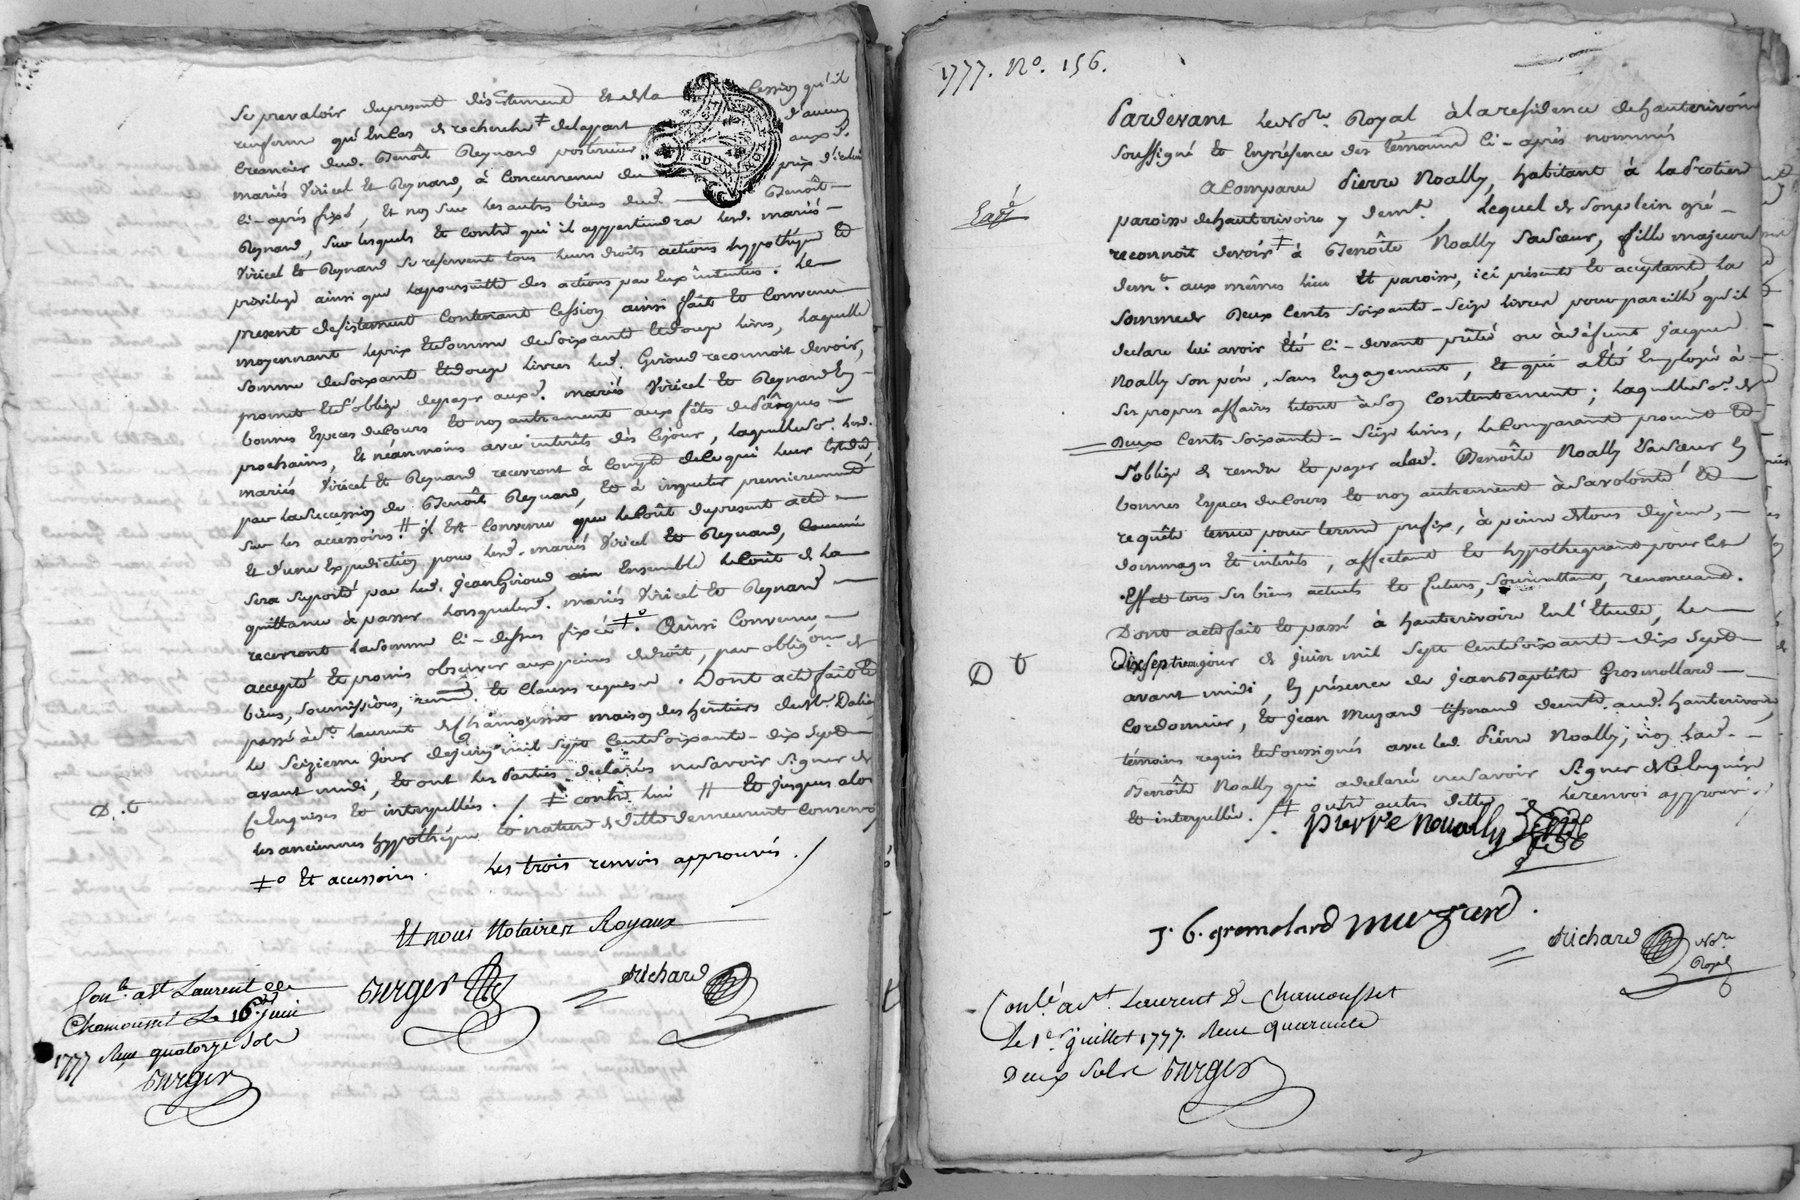 Se prevaloir du present désistement et de la cession qu'il
renferme qu'en cas de recherche ⧧ de la part d'aucun
creancier dud. Benoît Reynard postérieur auxd.
mariés Viricel et Reynard, à concurrence du prix d'icelui
ci-après fixé, et non sur les autres biens dud. Benoît
Reynard, sur lesquels et contre qui il appartiendra lesd. mariés
Viricel et Reynard se reservent tous leurs droits actions hypothèque et
privilege ainsi que la poursuitte des actions par eux intentées. Le
present desistement contenant cession ainsi fait et convenu
moyennant le prix et somme de soixante et douze livres, laquelle
somme de soixante et douze livres led. Giroud reconnoit devoir,
promet et s'oblige de payer auxd. mariés Viricel et Reynard en
bonnes especes du cours et non autrement aux fêtes de Pâques
prochaines, et néanmoins avec intérêts dès ce jour, laquelle so.e lesd.
mariés Viricel et Reynard recevront à compte de ce qui leur est dû
par la succession de Benoît Reynard, et à imputer premierement
sur les accessoires. # il est convenu que le coût du present acte
et d'une expediction pour lesd. mariés Viricel et Reynard,
sera suporté par led. Jean Giroud ensemble le coût de la
quittance à passer lorsque lesd. mariés Viricel et Reynard
recevront la somme ci-dessus fixée ⧧o. Ainsi convenu,
accepté et promis observer aux peines de droit, par oblig.on de
biens, soumissions, renon.. et clauses requises. Dont acte fait et
passé à St. Laurent de Chamousset maison des heritiers de Mr. Dalie,
le seizieme jour de juin mil sept cent soixante-dix sept
avant midi, et ont les parties declarées ne savoir signer de
ce enquises et interpellées. / ⧧ contre lui # et jusques alors
D. t
les anciennes hypothèques et nature de dette demeurent conservé
⧧o et accessoires. Les trois renvois approuvés. /
Et nous Notaires Royaux
Surger
Richard
Con.le a St Laurent de
Chamousset le 16 juin
1777 Reçu quatorze sols
Surger
1777. No. 156.
Pardevant le No.re Royal à la residence de hauterivoire
soussigné et en présence des temoins ci-après nommés
a comparu Pierre Noally, habitant à la Protier
paroisse de hauterivoire y dem.t, lequel de son plein gré
reconnoit devoir ⧧ à Benoîte Noally sa sœur, fille majeure
dem.te aux mêmes lieu et paroisse, ici présente et acceptante, la
somme de deux cents soixante-seize livres pour pareille qu'il
declare lui avoir été ci-devant prêtée ou à défunt Jacques
Noally son père, sans engagement, et qui a été employée à
ses propres affaires le tout à son contentement; laquelle so.e de
deux cents soixante-seize livres, le comparant promet et
s'oblige de rendre et payer à lad. Benoîte Noally sa sœur en
bonnes especes du cours et non autrement à sa volonté et
requête tenue pour terme prefix, à peine de tous depens,
dommages et intérêts, affectant et hypothequant pour cet
effet tous ses biens actuels et futurs, soumettant, renonceant.
Dont acte fait et passé à hauterivoire en l'Etude, le
D t
Dixseptieme jour de juin mil sept cent soixante-dix sept
avant midi, en présence de Jean Baptiste Grosmollard
cordonnier, et Jean Muzard tisserand dem.ts aud. hauterivoire,
témoins requis et soussignés avec led. Pierre Noally; non lad.
Benoîte Noally qui a declaré ne savoir signer de ce enquise
et interpellée. /. ⧧ outre autres dettes le renvoi approuvé. /
pierre noually
J. B. gromolard muzard.
Richard No.re Royal
Con.lé a St. Laurent de Chamousset
Le 1er juillet 1777. Reçu quarante
Deux sols Surger